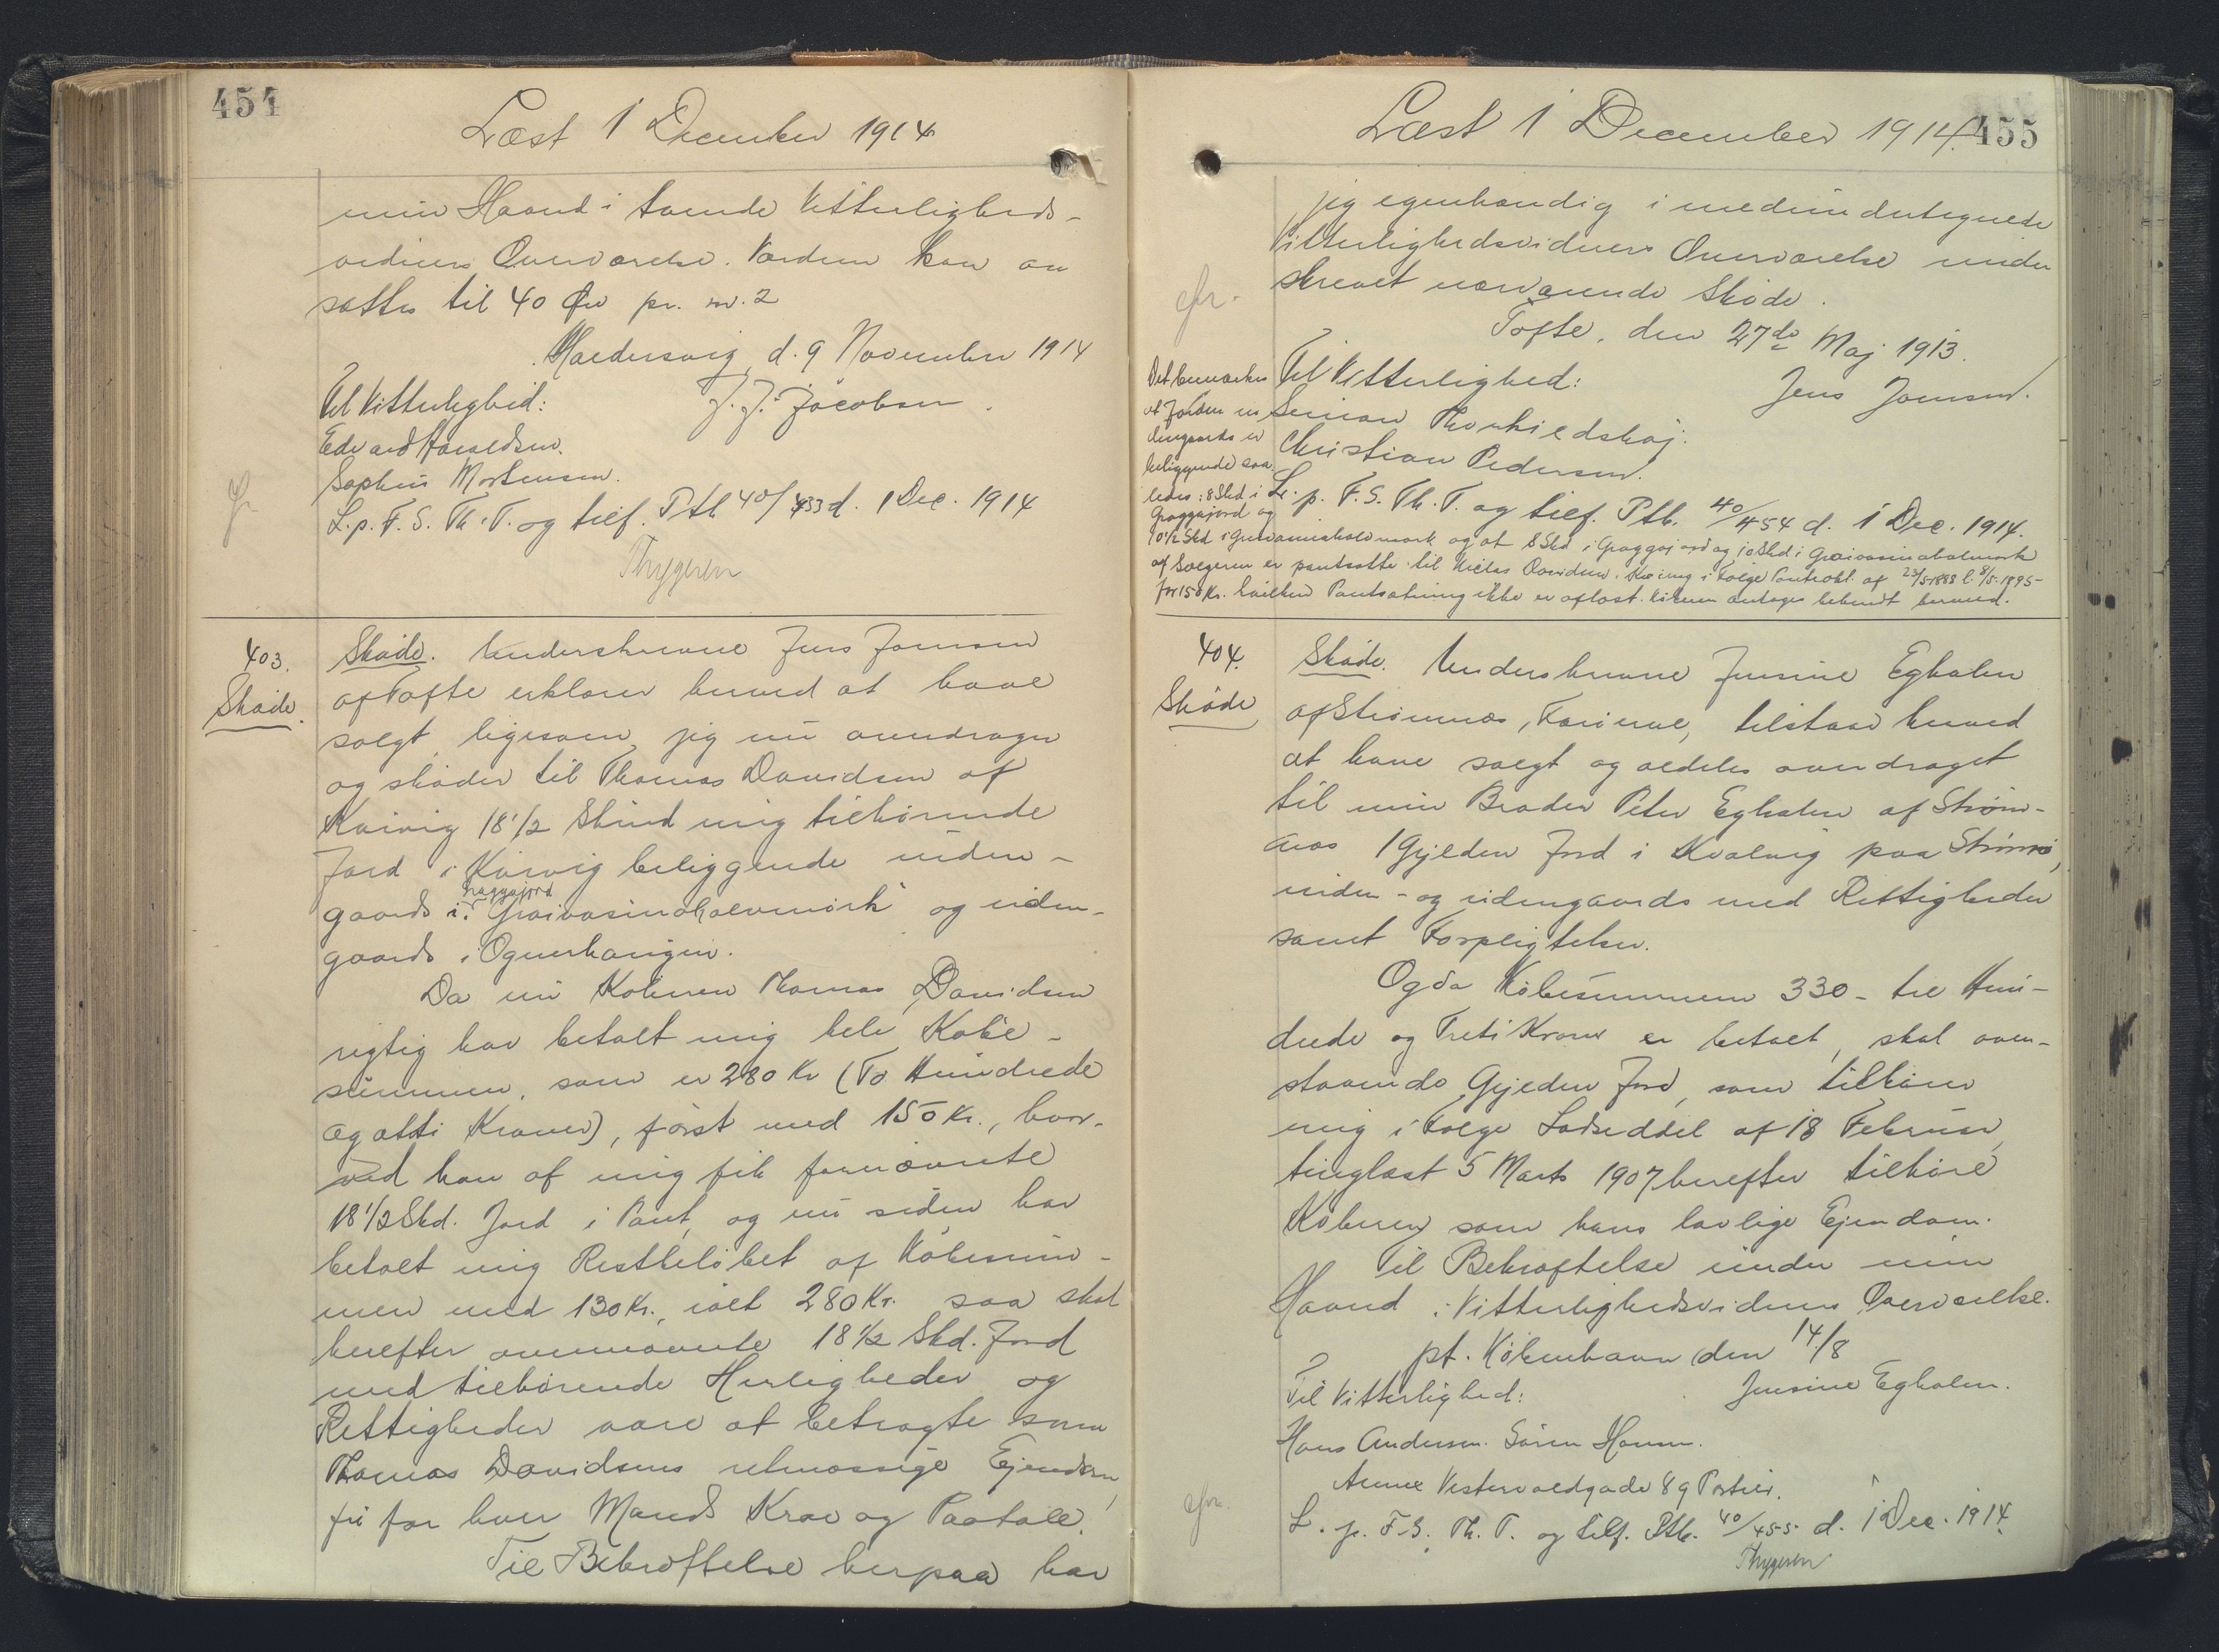 454
Læst 1 December 1914
min Haand i tvende Vitterligheds-
vidners Overværelse. Værdien kan an
sættes til 40 Øre pr. m. 2
Haldersvig, d. 9 November 1914
Til Vitterlighed:
J. J. Jacobsen.
Edvard Haraldsen.
Sophus Mortensen.
L. p. F. S. Th. T. og tilf. Ptb 40/453 d. 1 Dec. 1914
Thygesen
403.
Skøde.
Skøde. Underskrevne Jens Joensen
af Tofte erklærer herved at have
solgt, ligesom jeg nu overdrager
og skøder til Thomas Davidsen af
Kvivig 18 1/2 Skind mig tilhørende
Jord i Kvivig beliggende uden-
Graggajord
gaards i: Graivasinahaevmørk og inden-
gaards i
Da nu Køberen Thomas Davidsen
rigtig har betalt mig hele Købe-
summen, som er 280 Kr (To Hundrede
og otti Kroner), først med 150 Kr., hvor-
ved han af mig fik fornævnte
18 1/2 Skd. Jord i Pant, og nu siden har
betalt mig Restbeløbet af Købesum-
men med 130 Kr., ialt 280 Kr. saa skal
herefter ovennævnte 18 1/2 Skd. Jord
med tilhørende Herligheder og
Rettigheder være at betragte som
Thomas Davidsens retmæssige Ejendom,
fri for hver Mands Krav og Paatale.
Til Bekræftelse herpaa har
Læst 1 December 1914.
455
jeg egenhændig i medundertegnede
Vitterlighedsvidners Overværelse under
skrevet nærværende Skøde.
Tofte, den 27de Maj 1913.
Til Vitterlighed:
Jens Joensen.
Simon Thorkildshøj.
Christian Pedersen.
L. p. F. S. Th. T. og tilf. Ptb. 40/454 d. 1 Dec. 1914.
Det bemærkes
at Jorden u
dengaards er
beliggende saa
ledes: 8 Skd i
Graggajord og
10 1/2 Skd i mørk og at 8 Skd i Graggajord og 10 Skd i
af Sælgeren er pantsatte til Niclas Davidsen, Kvivig i Følge Pantobl. af 23/5 1888 l. 8/5 1895
for 150 Kr. hvilken Pantsætning ikke er aflæst. Køberen antages bekendt hermed.
404.
Skøde
Skøde. Underskrevne Jensine Egholm
af Strømnæs, Færøerne, tilstaar herved
at have solgt og aldeles overdraget
til min Broder Peter Egholm af Strøm-
næs 1 Gylden Jord i Kvalvig paa Strømø,
inden- og udengaards med Rettigheder
samt Forpligtelser.
Og da Købesummen 330 - tre Hun-
drede og Treti Kroner er betalt, skal oven-
staaende Gylden Jord, som tilhører
mig i Følge Lodseddel af 18 Februar,
tinglæst 5 Marts 1907 herefter tilhøre
Køberen som hans lovlige Ejendom.
Til Bekræftelse under min
Haand i Vitterlighedsvidners Overværelse.
pt. København den 14/8
Til Vitterlighed:
Jensine Egholm.
Hans Andersen. Søren Hansen.
Vestervoldgade 89 Portier.
L. p. F. S. Th. T. og tilf. Ptb. 40/455 d. 1 Dec. 1914.
Thygesen